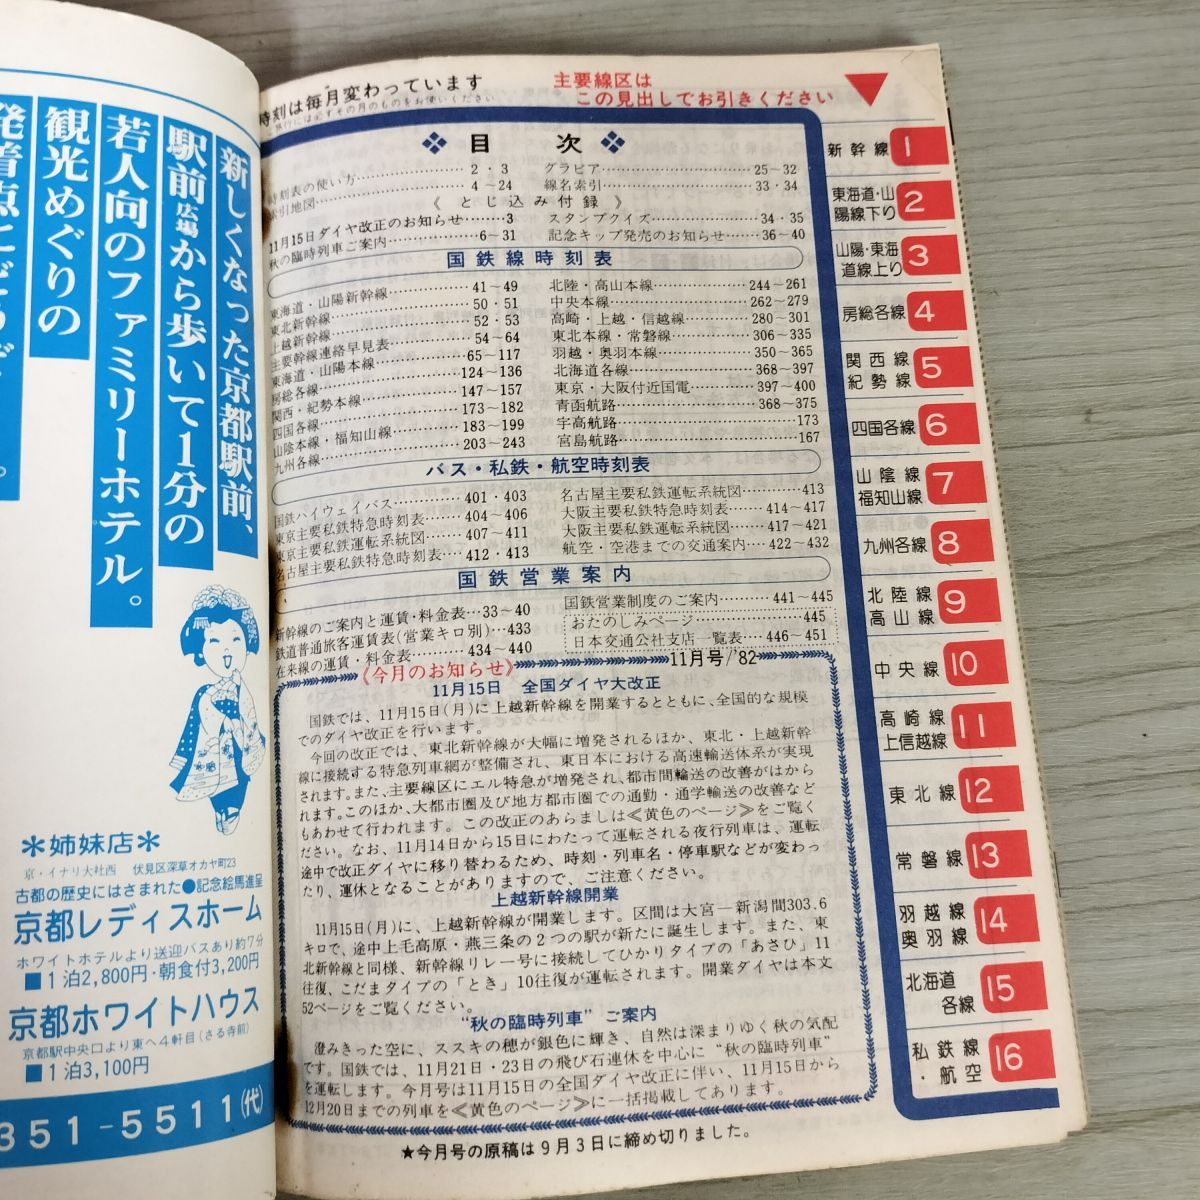 新しくなった京都駅前、
駅前広場から歩いて1分の
若人向のファミリーホテル。
観光めぐりの
＊姉妹店＊
京・イナリ大社西　伏見区深草オカヤ町23
古都の歴史にはさまれた●記念絵馬進呈
京都レディスホーム
ホワイトホテルより送迎バスあり約7分
■1泊2,800円・朝食付3,200円
京都ホワイトハウス
京都駅中央口より東へ4軒目(さる寺前)
■1泊3,100円
351-5511(代)
時刻は毎月変わっています
旅行には必ずその月のものをお使いください
主要線区は
この見出しでお引きください
目次
時刻表の使い方 2・3
索引地図 4〜24
グラビア 25〜32
線名索引 33・34
《とじ込み付録》
11月15日ダイヤ改正のお知らせ 3
秋の臨時列車ご案内 6〜31
スタンプクイズ 34・35
記念キップ発売のお知らせ 36〜40
国鉄線時刻表
東海道・山陽新幹線 41〜49
東北新幹線 50・51
上越新幹線 52・53
主要幹線連絡早見表 54〜64
東海道・山陽本線 65〜117
房総各線 124〜136
関西・紀勢本線 147〜157
四国各線 173〜182
山陰本線・福知山線 183〜199
九州各線 203〜243
北陸・高山本線 244〜261
中央本線 262〜279
高崎・上越・信越線 280〜301
東北本線・常磐線 306〜335
羽越・奥羽本線 350〜365
北海道各線 368〜397
東京・大阪付近国電 397〜400
青函航路 368〜375
宇高航路 173
宮島航路 167
バス・私鉄・航空時刻表
国鉄ハイウェイバス 401・403
東京主要私鉄特急時刻表 404〜406
東京主要私鉄運転系統図 407〜411
名古屋主要私鉄特急時刻表 412・413
名古屋主要私鉄運転系統図 413
大阪主要私鉄特急時刻表 414〜417
大阪主要私鉄運転系統図 417〜421
航空・空港までの交通案内 422〜432
国鉄営業案内
新幹線のご案内と運賃・料金表 33〜40
鉄道普通旅客運賃表(営業キロ別) 433
在来線の運賃・料金表 434〜440
国鉄営業制度のご案内 441〜445
おたのしみページ 445
日本交通公社支店一覧表 446〜451
《今月のお知らせ》
11月号/'82
11月15日　全国ダイヤ大改正
国鉄では、11月15日(月)に上越新幹線を開業するとともに、全国的な規模
でのダイヤ改正を行います。
今回の改正では、東北新幹線が大幅に増発されるほか、東北・上越新幹
線に接続する特急列車網が整備され、東日本における高速輸送体系が実現
されます。また、主要線区にエル特急が増発され、都市間輸送の改善がはから
れます。このほか、大都市圏及び地方都市圏での通勤・通学輸送の改善など
もあわせて行われます。この改正のあらましは≪黄色のページ≫をご覧く
ださい。なお、11月14日から15日にわたって運転される夜行列車は、運転
途中で改正ダイヤに移り替わるため、時刻・列車名・停車駅などが変わっ
たり、運休となることがありますので、ご注意ください。
上越新幹線開業
11月15日(月)に、上越新幹線が開業します。区間は大宮―新潟間303.6
キロで、途中上毛高原・燕三条の2つの駅が新たに誕生します。また、東
北新幹線と同様、新幹線リレー号に接続してひかりタイプの「あさひ」11
往復、こだまタイプの「とき」10往復が運転されます。開業ダイヤは本文
52ページをご覧ください。
“秋の臨時列車”ご案内
澄みきった空に、ススキの穂が銀色に輝き、自然は深まりゆく秋の気配
です。国鉄では、11月21日・23日の飛び石連休を中心に“秋の臨時列車”
を運転します。今月号は11月15日の全国ダイヤ改正に伴い、11月15日から
12月20日までの列車を≪黄色のページ≫に一括掲載してあります。
★今月号の原稿は9月3日に締め切りました。
新幹線 1
東海道・山
陽線下り 2
山陽・東海
道線上り 3
房総各線 4
関西線
紀勢線 5
四国各線 6
山陰線
福知山線 7
九州各線 8
北陸線
高山線 9
中央線 10
高崎線
上信越線 11
東北線 12
常磐線 13
羽越線
奥羽線 14
北海道
各線 15
私鉄線
・航空 16